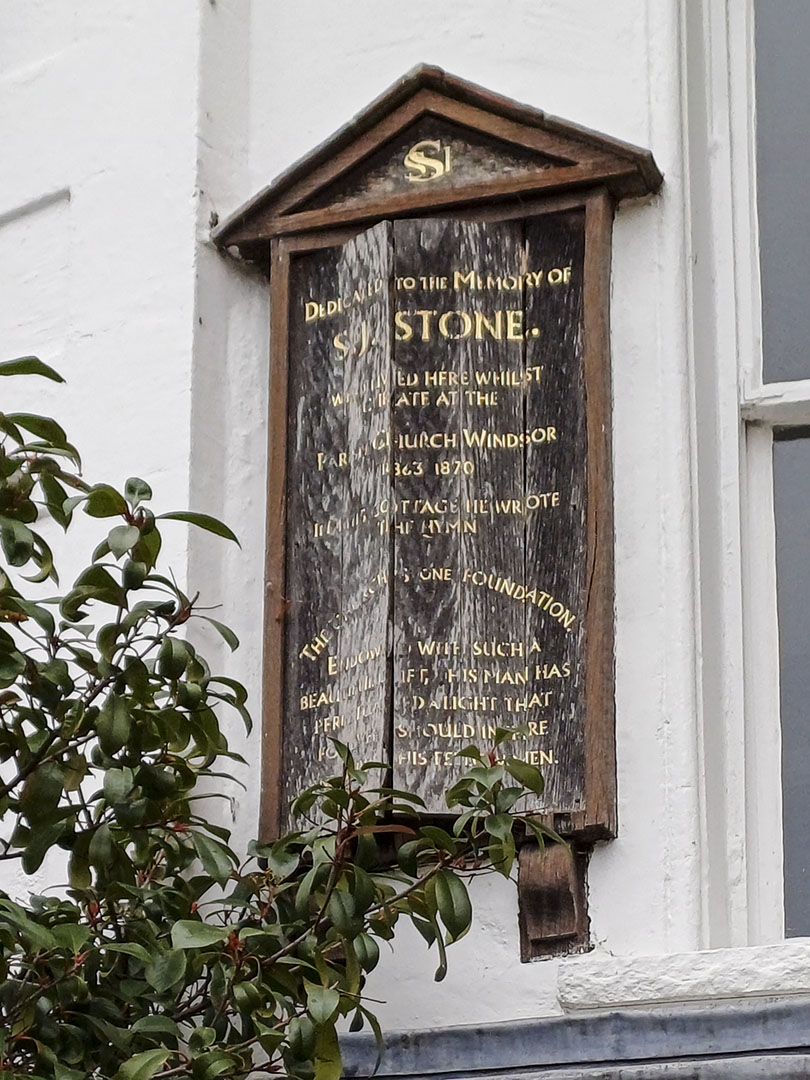 SJS
DEDICATED TO THE MEMORY OF
S.J. STONE.
WHO LIVED HERE WHILST
CURATE AT THE
PARISH CHURCH WINDSOR
1863 1870
IN THIS COTTAGE HE WROTE
THE HYMN
THE CHURCH'S ONE FOUNDATION.
ENDOWED WITH SUCH A
BEAUTIFUL GIFT, THIS MAN HAS
A LIGHT THAT
SHOULD INSPIRE
HIS FELLOW MEN.